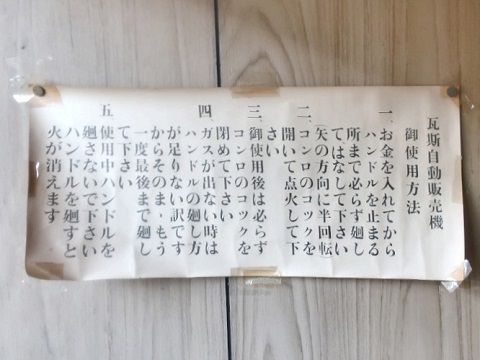 瓦斯自動販売機
御使用方法
一、お金を入れてから
ハンドルを止まる
所まで必らず廻し
てはなして下さい
(矢の方向に半回転)
二、コンロのコックを
開いて点火して下
さい
三、御使用後は必らず
コンロのコックを
閉めて下さい
四、ガスが出ない時は
ハンドルの廻し方
が足りない訳です
からそのまま・もう
一度最後まで廻し
て下さい
五、使用中ハンドルを
廻さないで下さい
ハンドルを廻すと
火が消えます